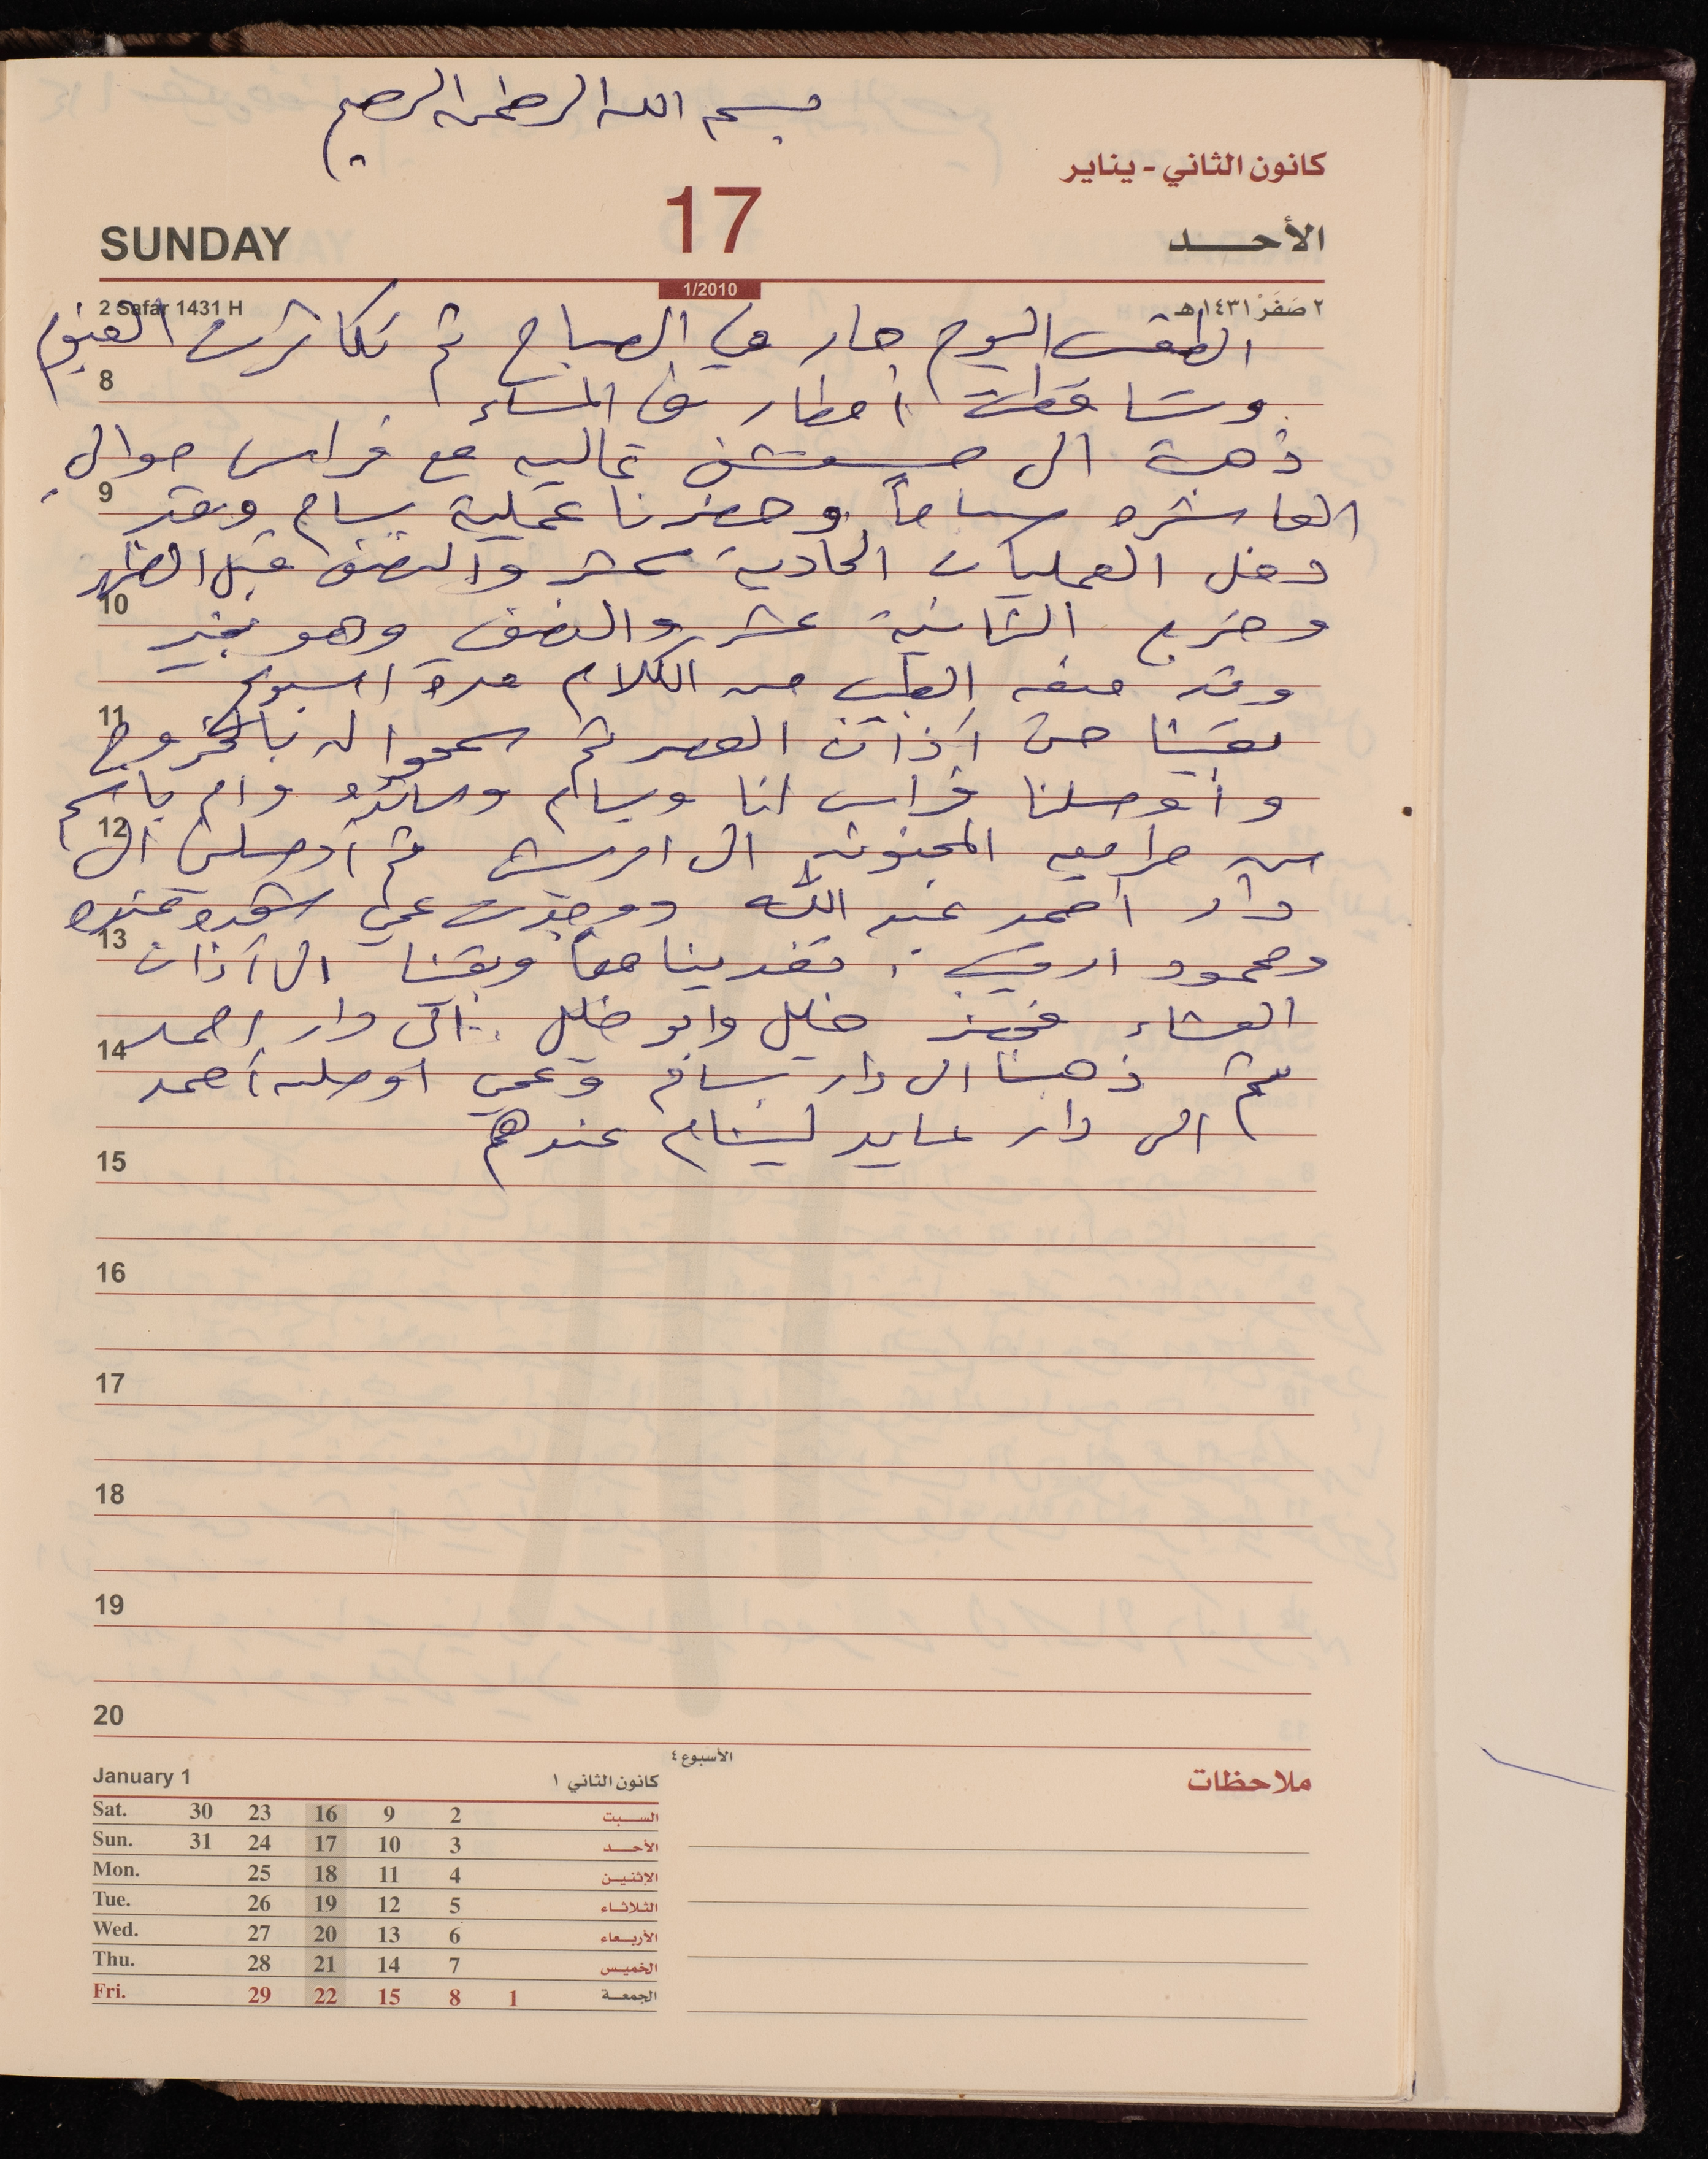 بسم الله الرحمن الرحيم
كانون الثاني - يناير
SUNDAY 17 الأحـــد
2 Safar 1431 H 1/2010 ٢ صَفَرْ ١٤٣١هـ
الطقس اليوم حار في الصباح ثم تكاثرت الغيوم
8 وتساقطت أمطار في المساء
ذهبت الى مستشفى عاليه مع فراس حوالي
9 العاشره صباحاً وحضرنا عملية بسام وقد
دخل العمليات الحادية عشر والنصف قبل الظهر
10 وخرج الثانية عشر والنصف وهو بخير
وقد منعه الطبيب من الكلام مدة اسبوع
11 بقينا حتى آذان العصر ثم سمحوا له بالخروج
وأوصلنا فراس انا وبسام وسائده وام باسم
12 المجنونه الى ثم أوصلني الى
دار أحمد عبد الله ووجدت عمي عنده
13 ومحمود تغدينا معاً وبقينا الى آذان
العشاء خليل وابو خليل الى دار احمد
14 ثم ذهبنا الى دار بسام وعمي اوصله أحمد
الى دار عايد لينام عندهم
15
16
17
18
19
20
الأسبوع ٤
January 1 كانون الثاني ١ ملاحظات
Sat. 30 23 16 9 2 السـبت
Sun. 31 24 17 10 3 الأحـد
Mon. 25 18 11 4 الإثنيـن
Tue. 26 19 12 5 الثلاثـاء
Wed. 27 20 13 6 الأربـعاء
Thu. 28 21 14 7 الخميـس
Fri. 29 22 15 8 1 الجمعـة